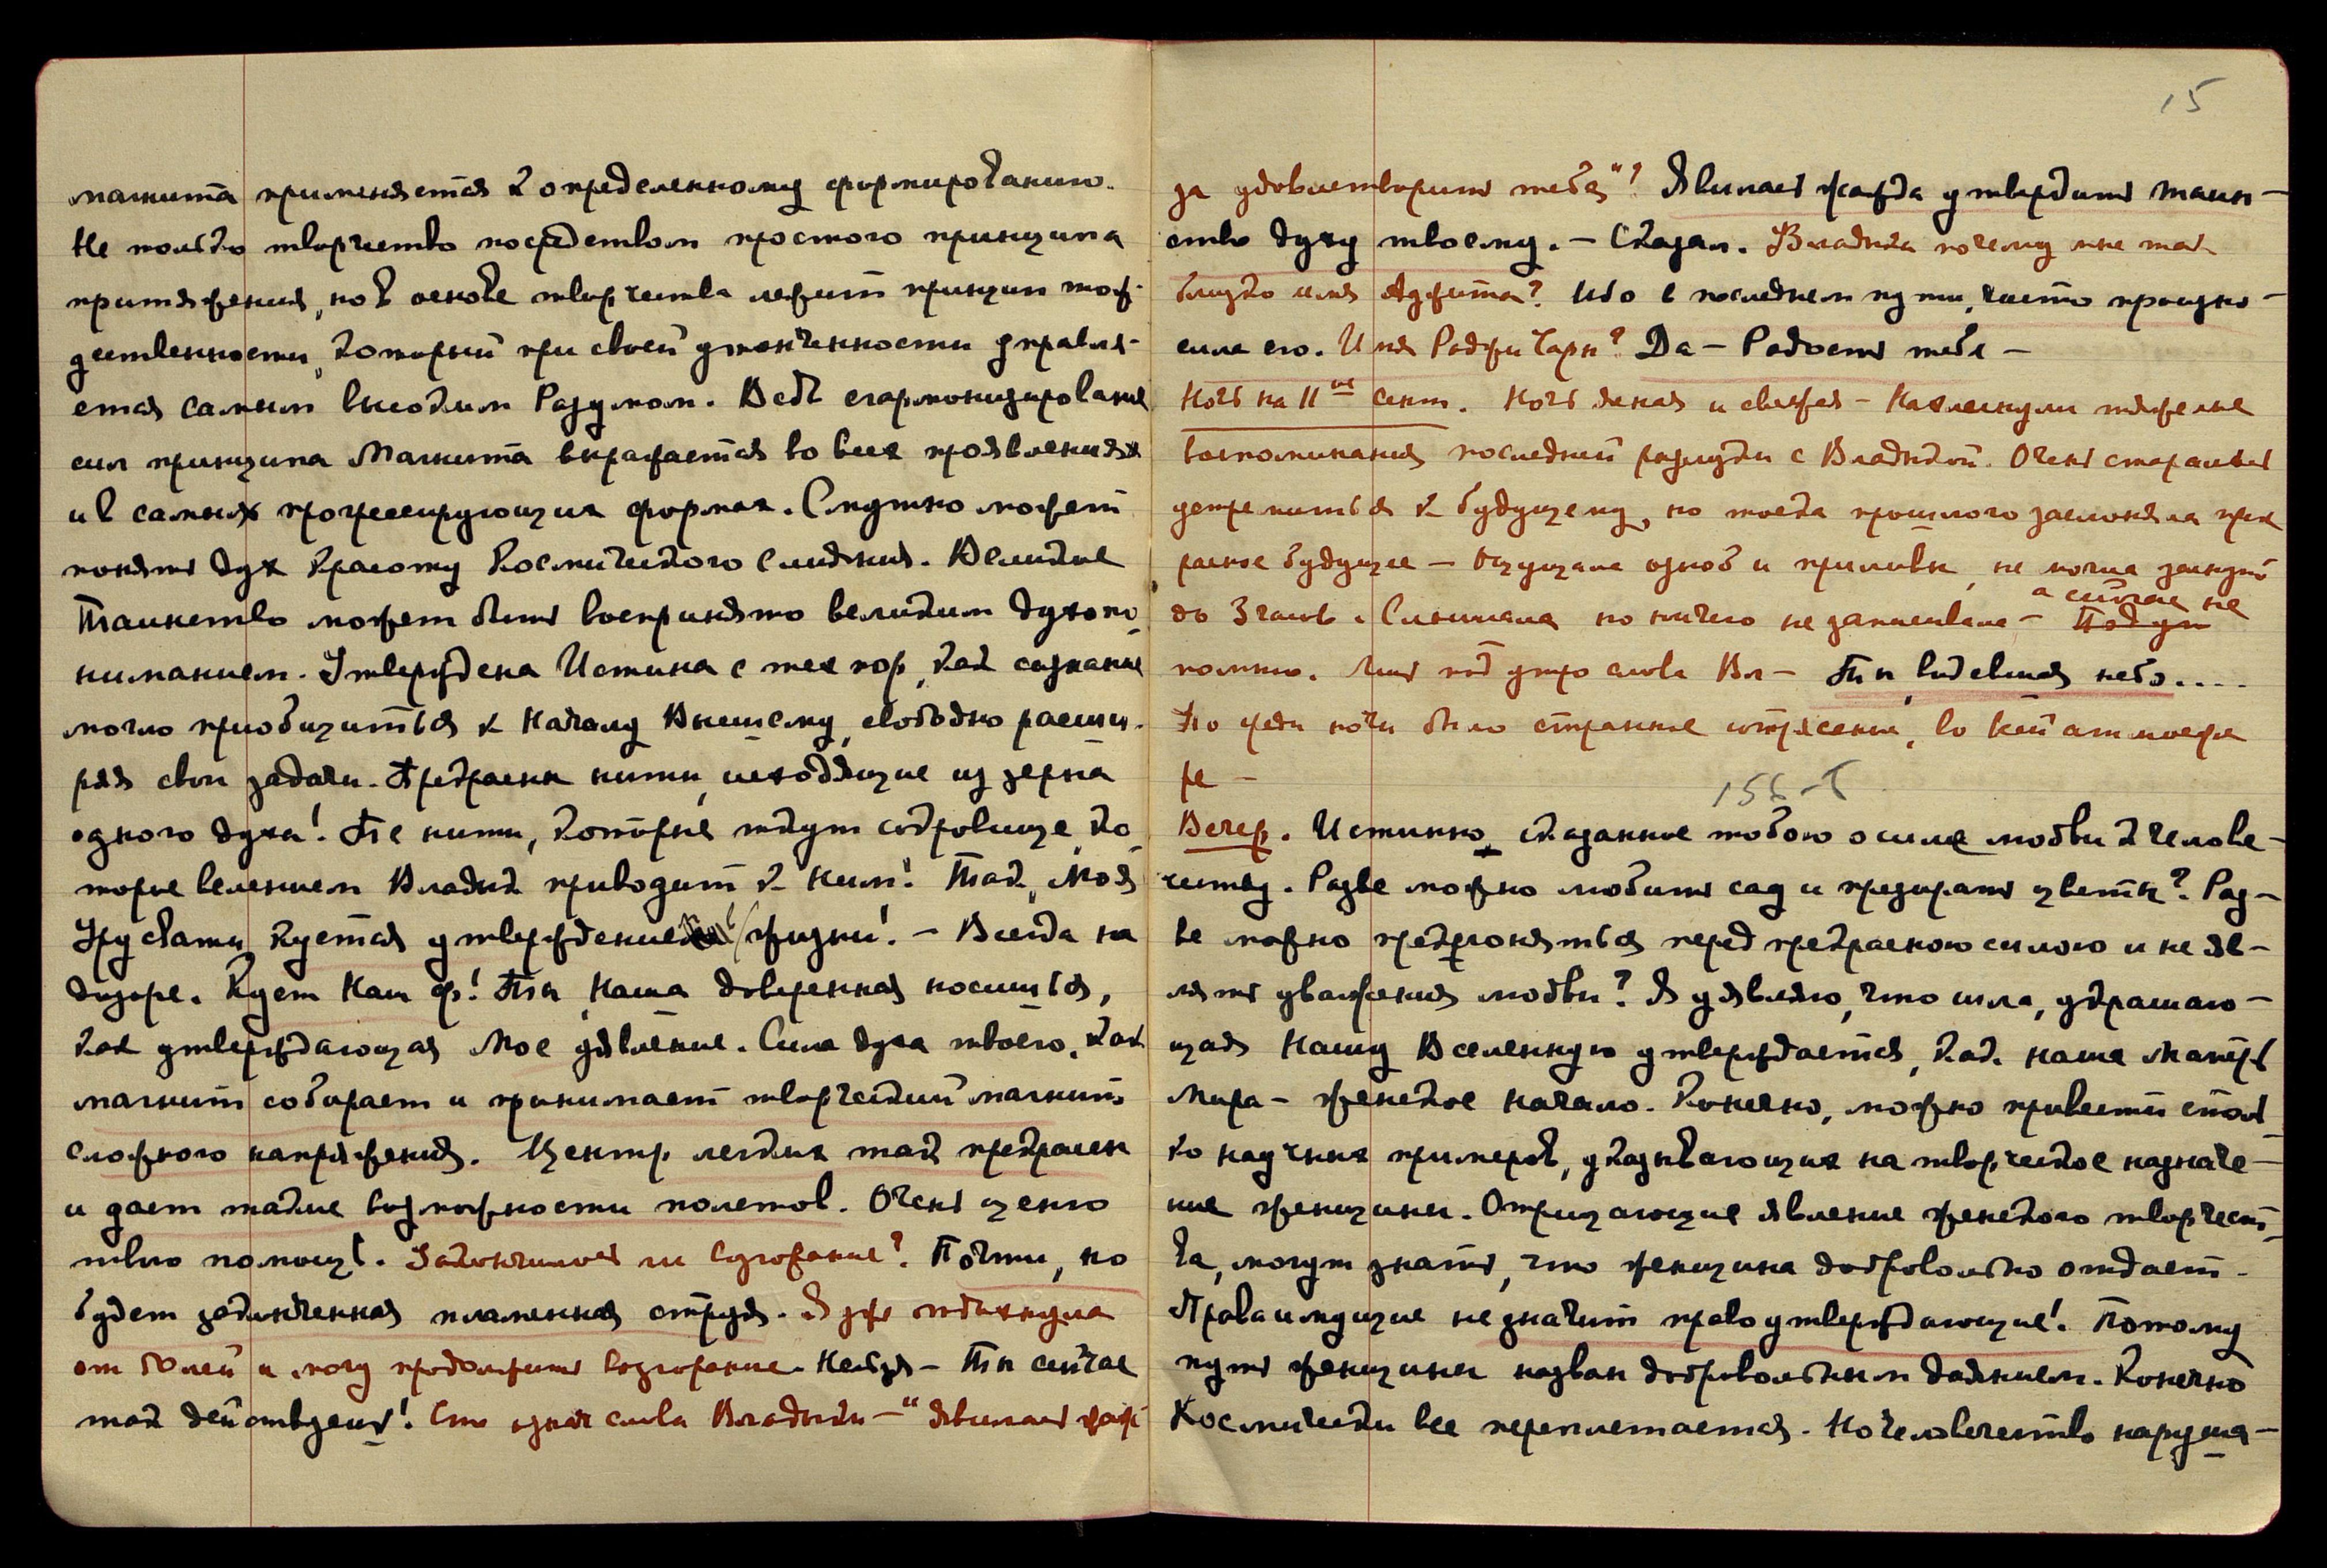 магнита применяется к определенному формированию.
Не только творчество посредством простого принципа
притяжения, но в основе творчества лежит принцип тож-
дественности, который при своей утонченности управля-
ется самым высоким Разумом. Ведь сгармонизирование
сил принципа Магнита выражается во всех проявлениях
и в самых прогрессирующих формах. Смутно может
понять дух красоту Космического Слияния. Великое
Таинство может быть воспринято великим духопо-
ниманием. Утверждена Истина с тех пор, как сознание
могло приобщиться к Началу Высшему, свободно расши-
ряя свои задачи. Прекрасны нити, исходящие из зерна
одного духа! Те нити, которые ткут сокровище, ко-
торые велением Владык приводят к Ним! Так, Моя
Урусвати, куется утверждение жизни! - Всегда на
дозоре. Кует Наш ф! Ты, Наша доверенная носишься,
как утверждающая Мое явление. Сила духа твоего, как
магнит собирает и принимает творческий магнит
сложного напряжения. Центр легких так прекрасен
и дает такие возможности полетов. Очень ценю
твою помощь. Закончилось ли возгорание? Почти, но
будет заключенная пламенная струя. Я уже отдохнула
от болей и могу продолжить возгорание. Нельзя - Ты сейчас
так действуешь! Сто одная слова Владыки - "Явилась жаж-
15
за удовлетворить тебя"? Явилась жажда утвердить таин-
ство духу твоему. - Сказал. Владыка почему мне так
близко имя Аджита? Ибо в последнем пути, часто произно-
сила его. Имя Раджи Чарн? Да - Радость тебя -
Ночь на 11ое Сент. Ночь ясная и свежая - Нахлынули тяжелые
воспоминания последней разлуки с Владыкой. Очень старалась
устремиться к будущему, но тоска прошлого заслоняла прек
расное будущее - Ощущала озноб и приливы, не могла заснуть
до 3 часов. Слышала но ничего не записывала - а сейчас не
помню. Лишь под утро слова Вл - Ты, видевшая небо....
Но среди ночи было странное сотрясение, во всей атмосфе
ре -
Вечер. Истинно, сказанное тобою о силе любви к челове-
честву. Разве можно любить сад и презирать цветы? Раз-
ве можно преклоняться перед прекрасною силою и не яв-
лять уважения любви? Я уявляю, что сила, украшаю-
щая Нашу Вселенную утверждается, как наша Матерь
Мира - женское начало. Конечно, можно привести столь
ко научных примеров, указывающих на творческое назначе-
ние женщины. Отрицающие явление женского творчест-
ва, могут знать, что женщина добровольно отдает.
Права имущие не значит право утверждающие! Потому
путь женщины назван добровольным даянием. Конечно
Космически все переплетается. Но человечество наруша-